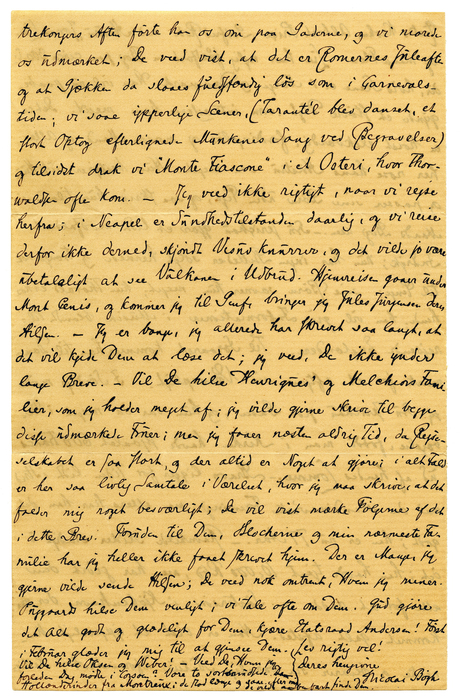 trekongers Aften förte han os om paa Gaderne, og vi morede
os üdmærket; De veed vist, at det er Romernes Jüleaften
og at Gjækken da slaaes füldstændig lös som i Carnevals-
tiden; vi saae ypperlige Scener, (Tarantél blev danset, et
stort Optog efterlignede Münkenes Sang ved Begravelser)
og tilsidst drak vi "Monte Fiascone" i et Osteri, hvor Thor-
waldsen ofte kom. — Jeg veed ikke rigtigt, naar vi reise
herfra; i Neapel er Sündhedstilstanden daarlig, og vi reise
derfor ikke derned, skjöndt Vesüv knürrer, og det vilde jo være
übetaleligt at see Vülkanen i Udbrüd. Hjemreisen gaaer ünder
Mont Cenis, og kommer jeg til Genf, bringer jeg Jüles Jürgensen Deres
Hilsen. — Jeg er bange, jeg allerede har skrevet saa langt, at
det vil kjede Dem at læse det; jeg veed, De ikke ynder
lange Breve. — Vil De hilse Henriqües' og Melchiors Fami-
lier, som jeg holder meget af; jeg vilde gjerne skrive til begge
disse üdmærkede Früer; men jeg faaer næsten aldrig Tid, da Rejse-
selskabet er saa stort, og der altid er Noget at gjöre; i alt Fald
er her saa livlig Samtale i Værelset, hvor jeg maa skrive, at det
falder mig noget besværligt; De vil vist mærke Fölgerne af det
i dette Brev. Forüden til Dem, Blocherne og min nærmeste Fa-
milie har jeg heller ikke faaet skrevet hjem. Der er Mange, jeg
gjerne vilde sende Hilsen; De veed nok omtrent, Hvem jeg mener.
hilse Dem venligt; vi tale ofte om Dem. Güd gjöre
det Alt godt og glædeligt for Dem, kjære Etatsraad Andersen! Först
i Febrüar glæder jeg mig til at gjensee Dem. Lev rigtig vel!
Vil De hilse Oksen og Weber! — Veed De, Hvem jeg Deres hengivne
forleden Dag mödte i Corsoen? Vore to
Hollænderinder fra Montreüx; de stod længe og saae
Nicolai Bögh